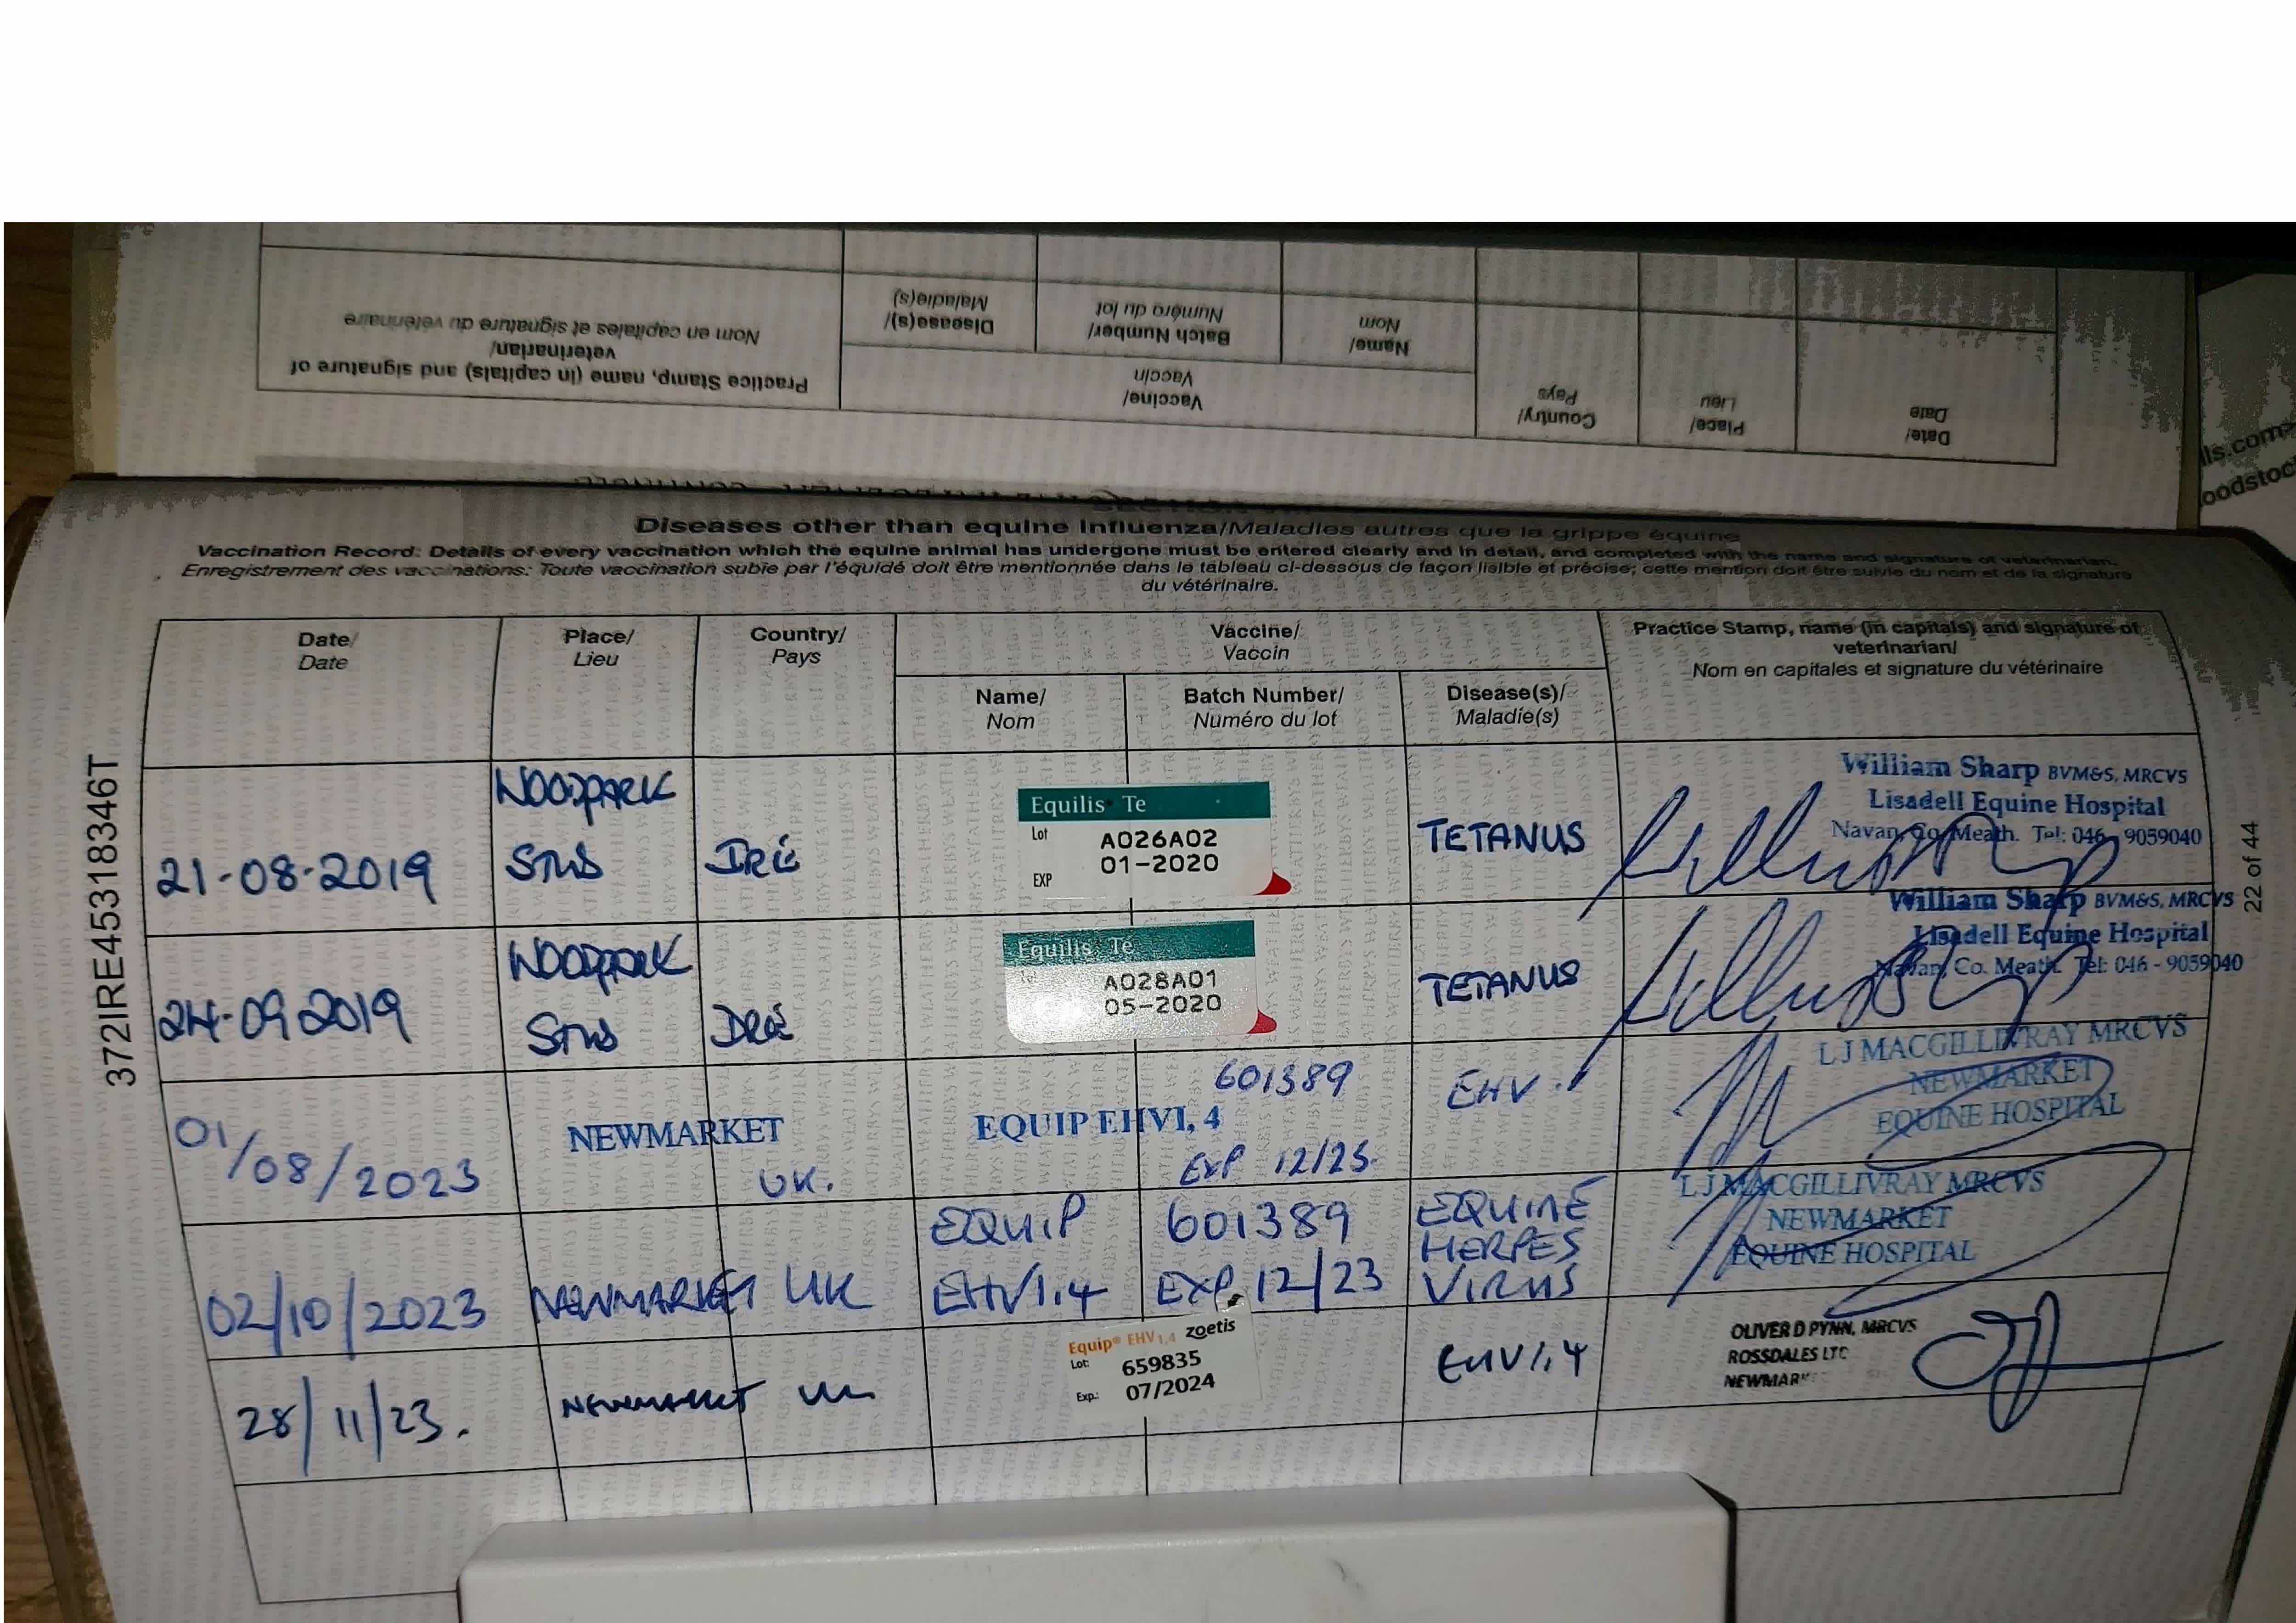 Practice Stamp, name (in capitals) and signature of
veterinarian/
Nom en capitales et signature du vétérinaire
Disease(s)/
Maladie(s)
Vaccine/
Vaccin
Batch Number/
Numéro du lot
Name/
Nom
Country/
Pays
Place/
Lieu
Date/
Date
ls.com
oodstoc
Diseases other than equine Influenza/Maladies autres que la grippe équine
Vaccination Record: Details of every vaccination which the equine animal has undergone must be entered clearly and in detail, and completed with the name and signature of veterinarian.
Enregistrement des vaccinations: Toute vaccination subie par l'équidé doit être mentionnée dans le tableau ci-dessous de façon lisible et précise; cette mention doit être suivie du nom et de la signature
du vétérinaire.
Date/
Date
Place/
Lieu
Country/
Pays
Vaccine/
Vaccin
Name/
Nom
Batch Number/
Numéro du lot
Disease(s)/
Maladie(s)
Practice Stamp, name (in capitals) and signature of
veterinarian/
Nom en capitales et signature du vétérinaire
372IRE45318346T
22 of 44
21-08-2019
WOODPARK
STUD
IRE
Equilis Te
Lot A026A02
EXP 01-2020
TETANUS
William Sharp BVM&S, MRCVS
Lisadell Equine Hospital
Navan, Co. Meath. Tel: 046 - 9059040
24-09-2019
WOODPARK
STUD
IRE
Equilis Te
A028A01
05-2020
TETANUS
William Sharp BVM&S, MRCVS
Lisadell Equine Hospital
Navan, Co. Meath. Tel: 046 - 9059040
01/08/2023
NEWMARKET
UK.
EQUIP EHV1, 4
601389
EXP 12/23.
EHV.
L J MACGILLIVRAY MRCVS
NEWMARKET
EQUINE HOSPITAL
02/10/2023
NEWMARKET
UK
EQUIP
EHV1.4
601389
EXP. 12/23
EQUINE
HERPES
VIRUS
L J MACGILLIVRAY MRCVS
NEWMARKET
EQUINE HOSPITAL
28/11/23.
NEWMARKET
UK
Equip® EHV 1,4 zoetis
Lot: 659835
Exp.: 07/2024
EHV1.4
OLIVER D PYNN, MRCVS
ROSSDALES LTD
NEWMARK